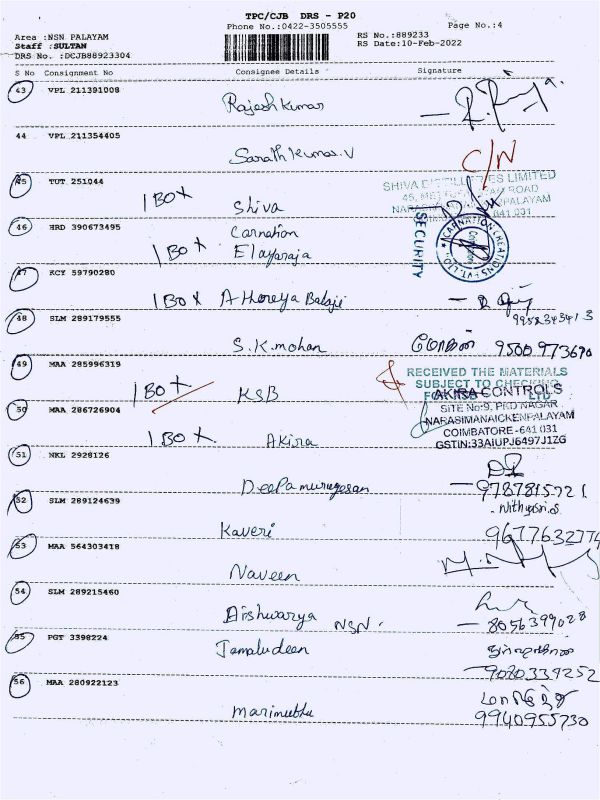 TPC/CJB DRS - P20
Phone No.:0422-3505555
Page No.:4
Area :NSN PALAYAM
RS No.:889233
Staff :SULTAN
RS Date:10-Feb-2022
DRS No. :DCJB88923304
S No Consignment No Consignee Details Signature
43 VPL 211391008
Rajesh kumar
44 VPL 211354405
Sarath kumar.V
C/N
45 TUT 251044
SHIVA DISTILLERIES LIMITED
1 BOX Shiva
46 HRD 390673495
Carnation
SECURITY
CARNATION CREATIONS PVT. LTD.
1 BOX Elayaraja
47 KCY 59790280
1 BOX Athoreya Balaji
48 SLM 289179555
S.K.mohan மோகன் 9500973690
49 MAA 285996319
RECEIVED THE MATERIALS
SUBJECT TO CHECKING
1 BOX KSB
AKIRA CONTROLS
SITE No:9, PKD NAGAR
50 MAA 286726904
NARASIMANAICKENPALAYAM
COIMBATORE-641 031
1 BOX Akira
GSTIN:33AIUPJ6497J1ZG
51 NKL 2928126
Deepa murugesan
52 SLM 289124639
Kaveri 9677632774
53 MAA 564303418
Naveen
54 SLM 289215460
Aishwarya NSN. 8056399028
55 PGT 3398224
Jamaludeen
9020339252
56 MAA 280922123
marimuthu
9940955730